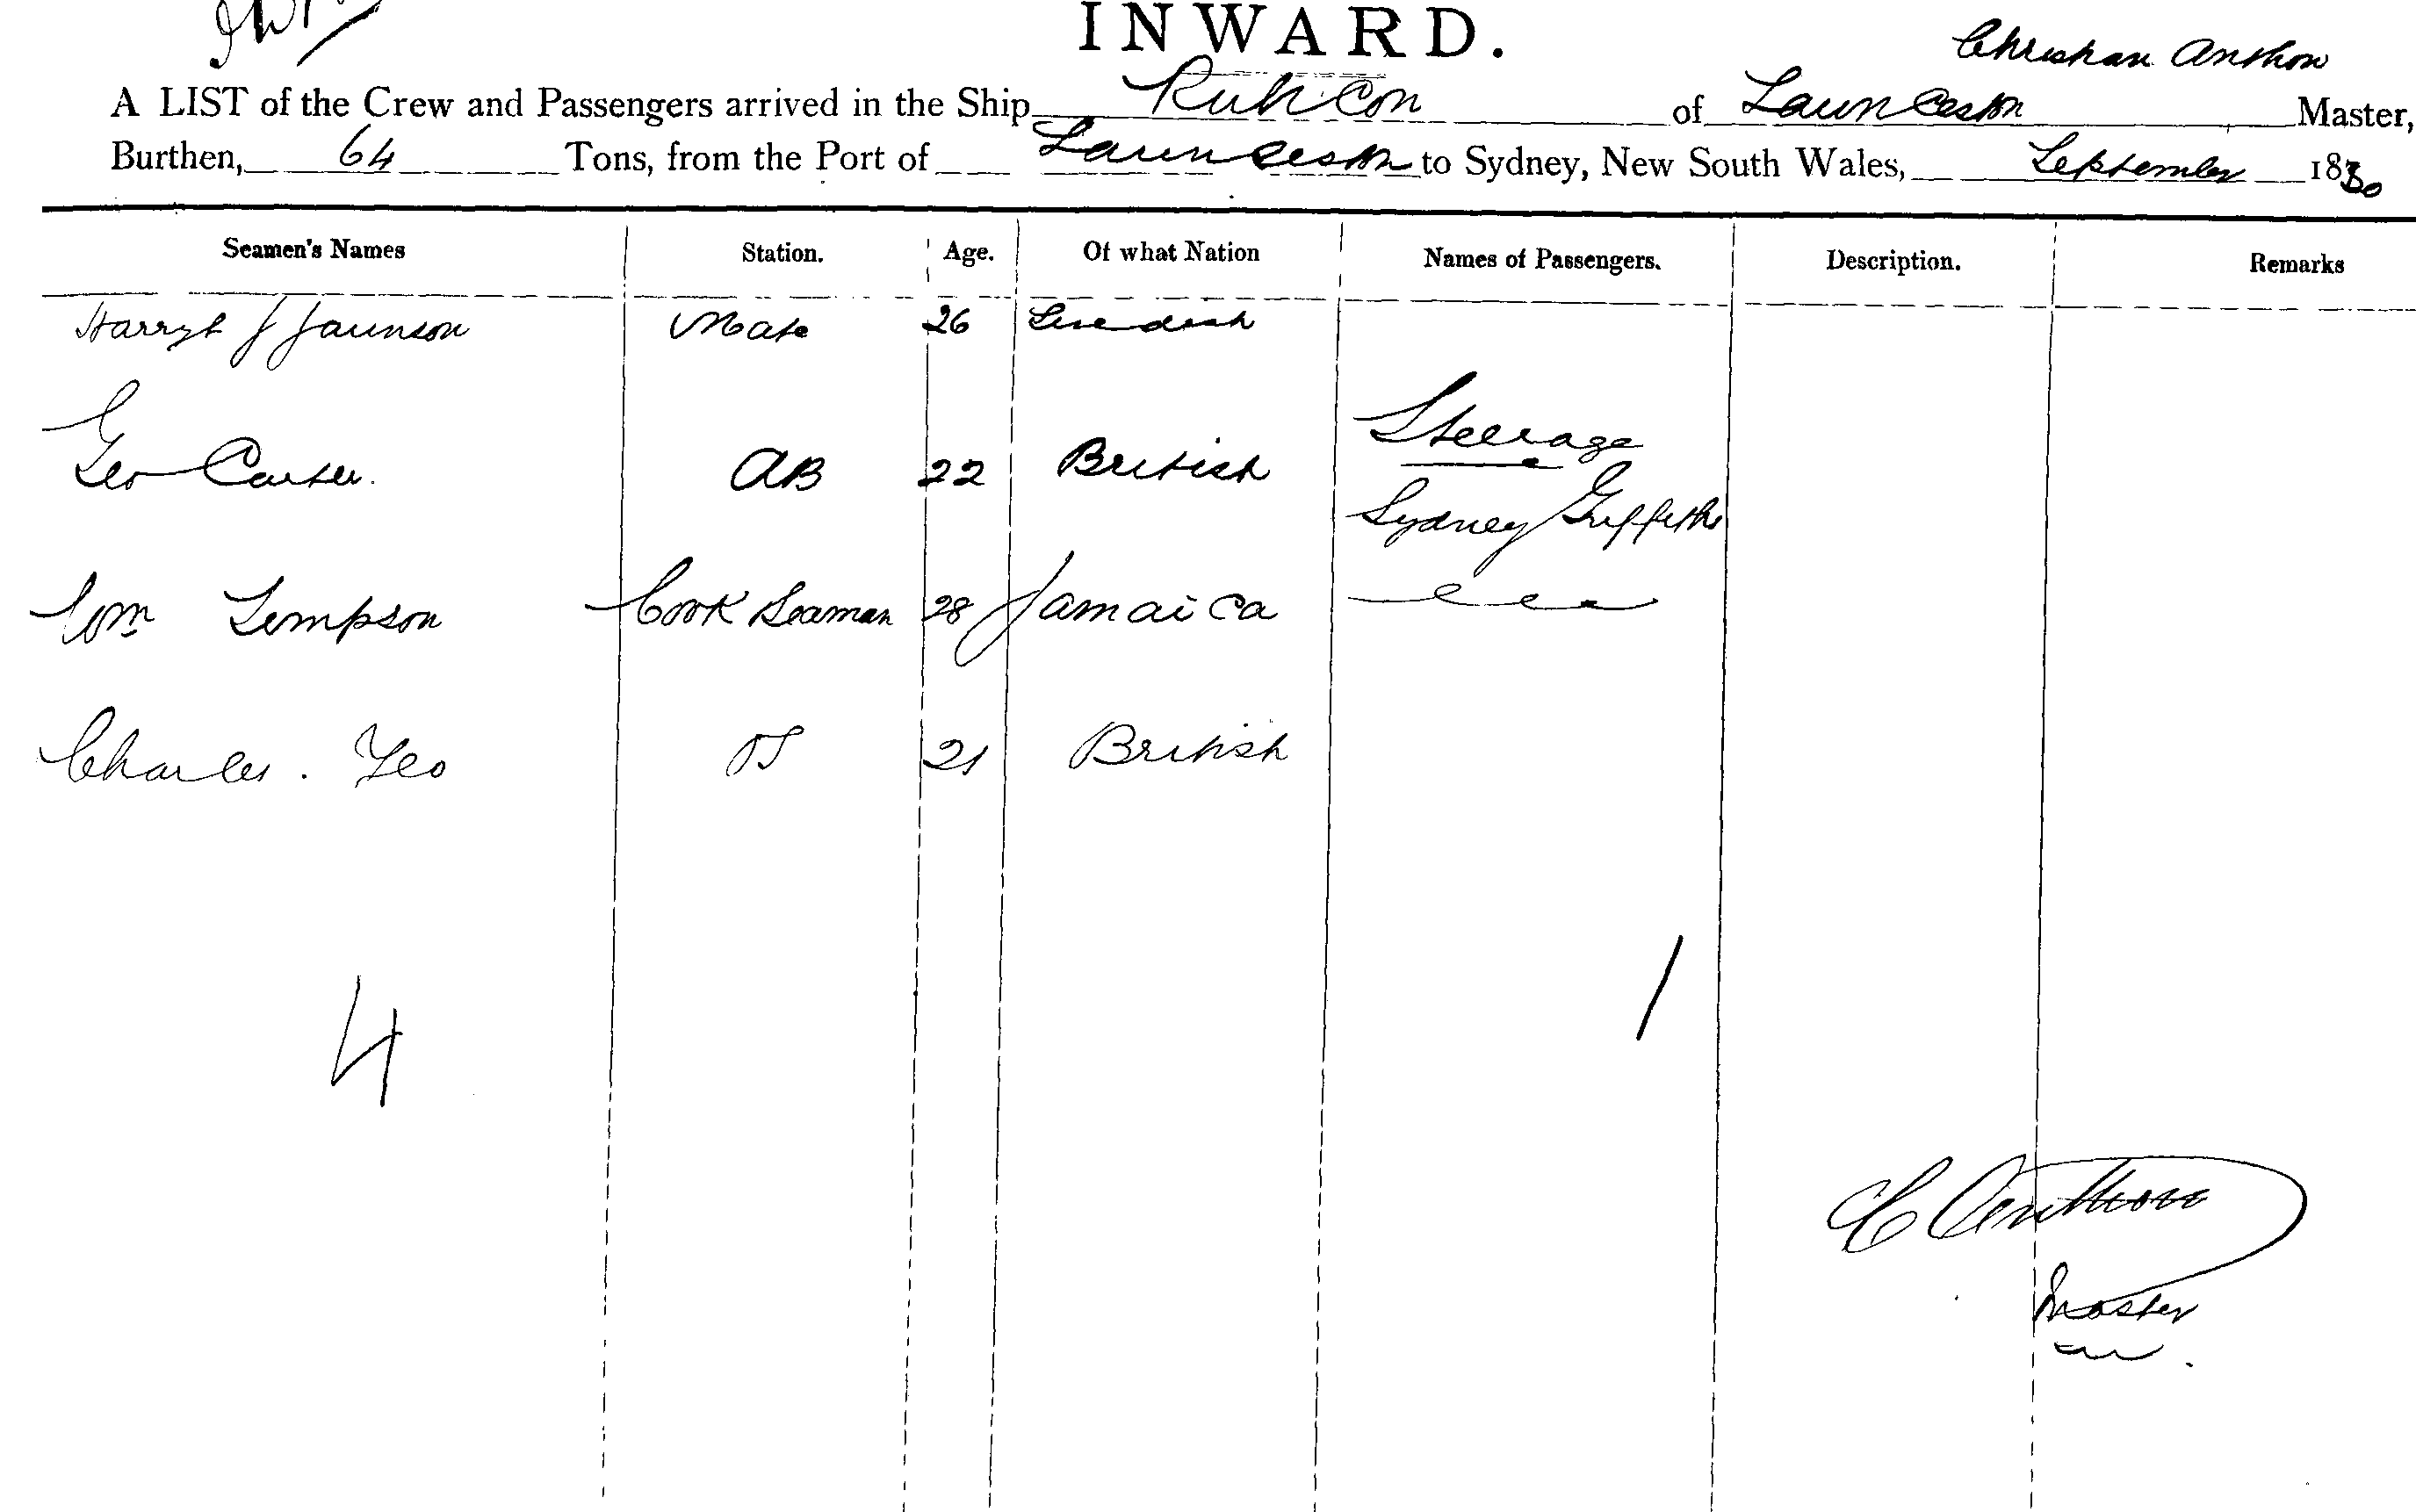 INWARD.
Christian Anthon
A LIST of the Crew and Passengers arrived in the Ship Rubicon of Launceston Master,
Burthen, 64 Tons, from the Port of Launceston to Sydney, New South Wales, September 18
Seamen's Names Station. Age. Of what Nation Names of Passengers. Description. Remarks
Mate 26 Swedish
Steerage
Geo Carter. AB 22 British
Sydney Griffiths
Wm Sempson Cook Seaman 28 Jamaica
Charles. Yeo OS 21 British
4 1
C Anthon
Master